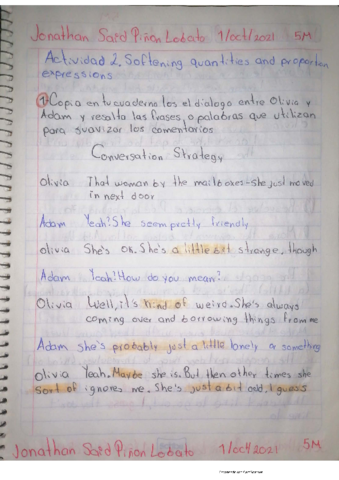 Jonathan Said Piñon Lobato 1/oct/2021 5M
Actividad 2. Softening quantities and proportion
expressions
① Copia en tu cuaderno los el dialogo entre Olivia y
Adam y resalta las frases, o palabras que utilizan
para suavizar los comentarios
Conversation Strategy
Olivia That woman by the mailboxes-she just moved
in next door
Adam Yeah? She seem pretly friendly
olivia She's OK. She's a little bit strange, though
Adam Yeah? How do you mean?
Olivia Well, it's kind of weird. She's always
coming over and borrowing things from me
Adam she's probably just a little lonely or something
Olivia Yeah. Maybe she is. But then other times she
sort of ignores me. She's just a bit odd, I guess
Jonathan Said Piñon Lobato 1/oct/2021 5M